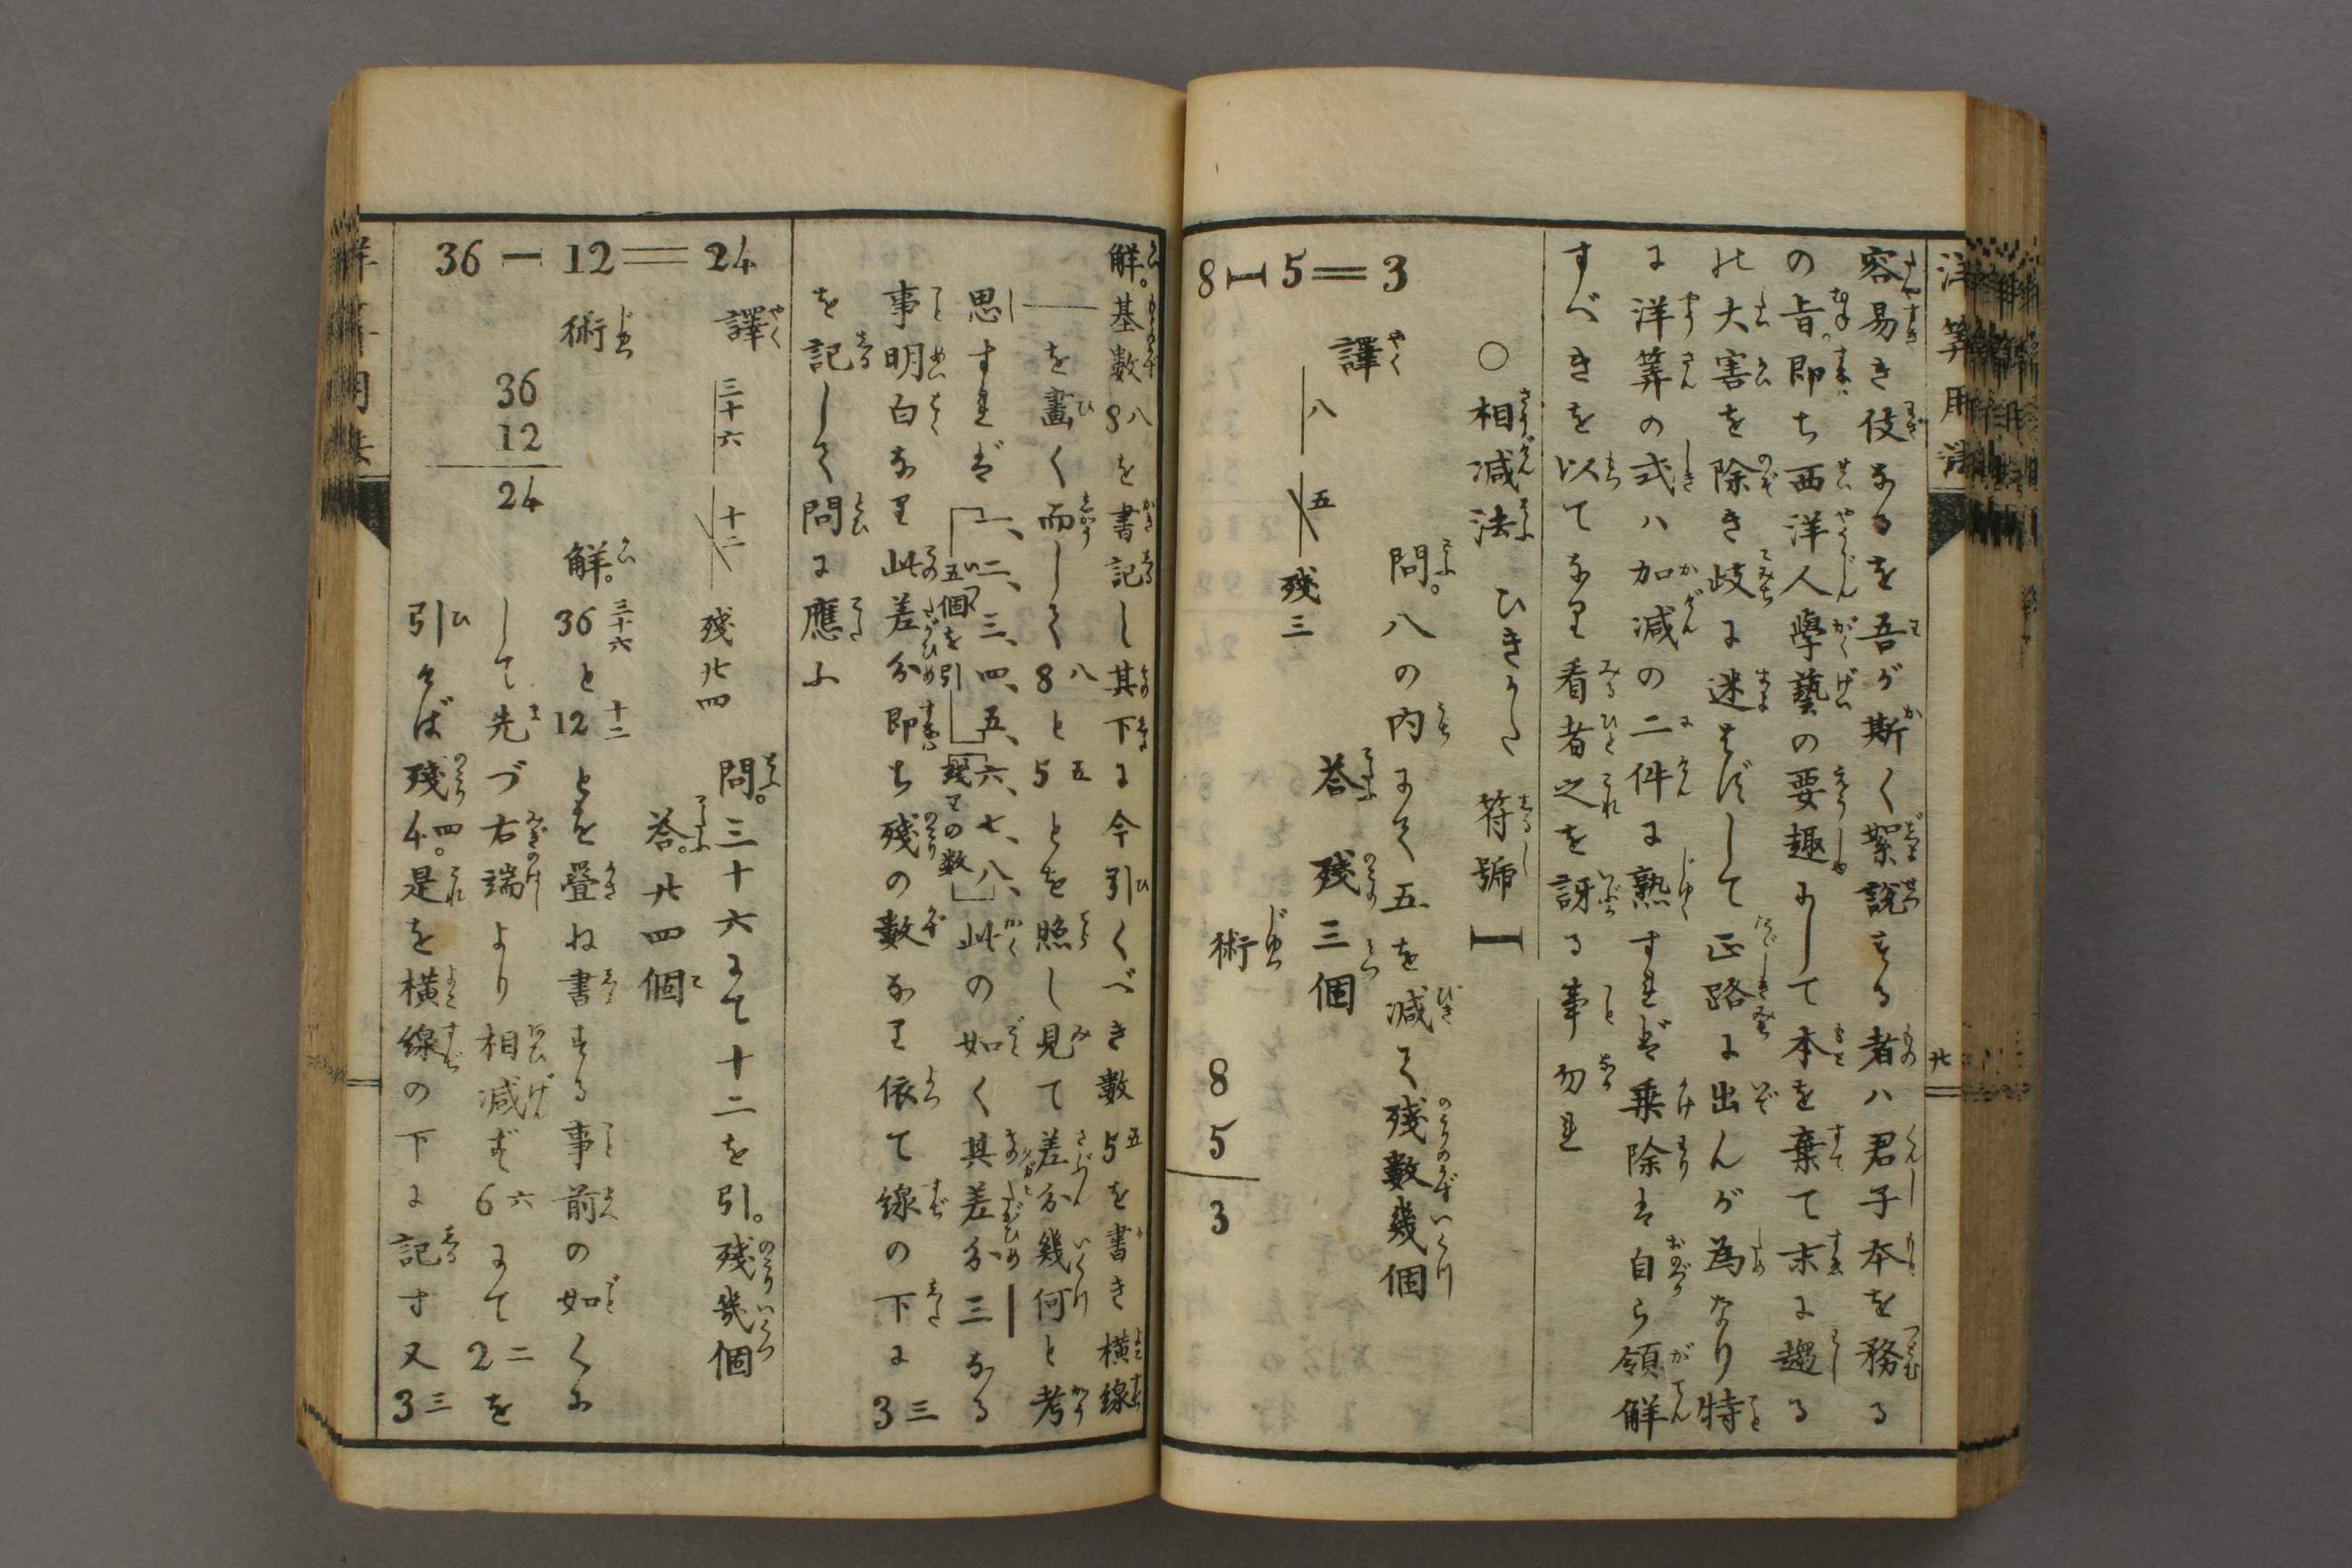 洋算用法
廿
容易き伎なるを吾が斯く絮説する者ハ君子本を務る
の旨即ち西洋人學藝の要趣にして本を棄て末に趨る
の大害を除き歧に迷はずして正路に出んが為なり特
に洋算の式ハ加減の二件に熟すれば乗除は自ら領解
すべきを以てなり看者之を訝る事勿れ
〇相減法 ひきかた 符號 −
問。八の内にて五を減て残數幾個
8−5=3
譯 八 五 残三
答 残三個
術 8
5
3
解。基数8を書記し其下に今引くべき數5を書き横線
を畫く而して8と5とを照し見て差分幾何と考
思すれば一、二、三、四、五、六、七、八、此の如く其差分三なる
五個を引
残りの数
事明白なり此差分即ち残の數なり依て線の下に3
を記して問に應ふ
36−12=24
譯 三十六 十二 残廿四
問。三十六にて十二を引。残幾個
答。廿四個
術
36
12
24
解。36と12とを疊ね書する事前の如くに
して先づ右端より相減ず6にて2を
引けば残4。是を横線の下に記す又3
洋算用法